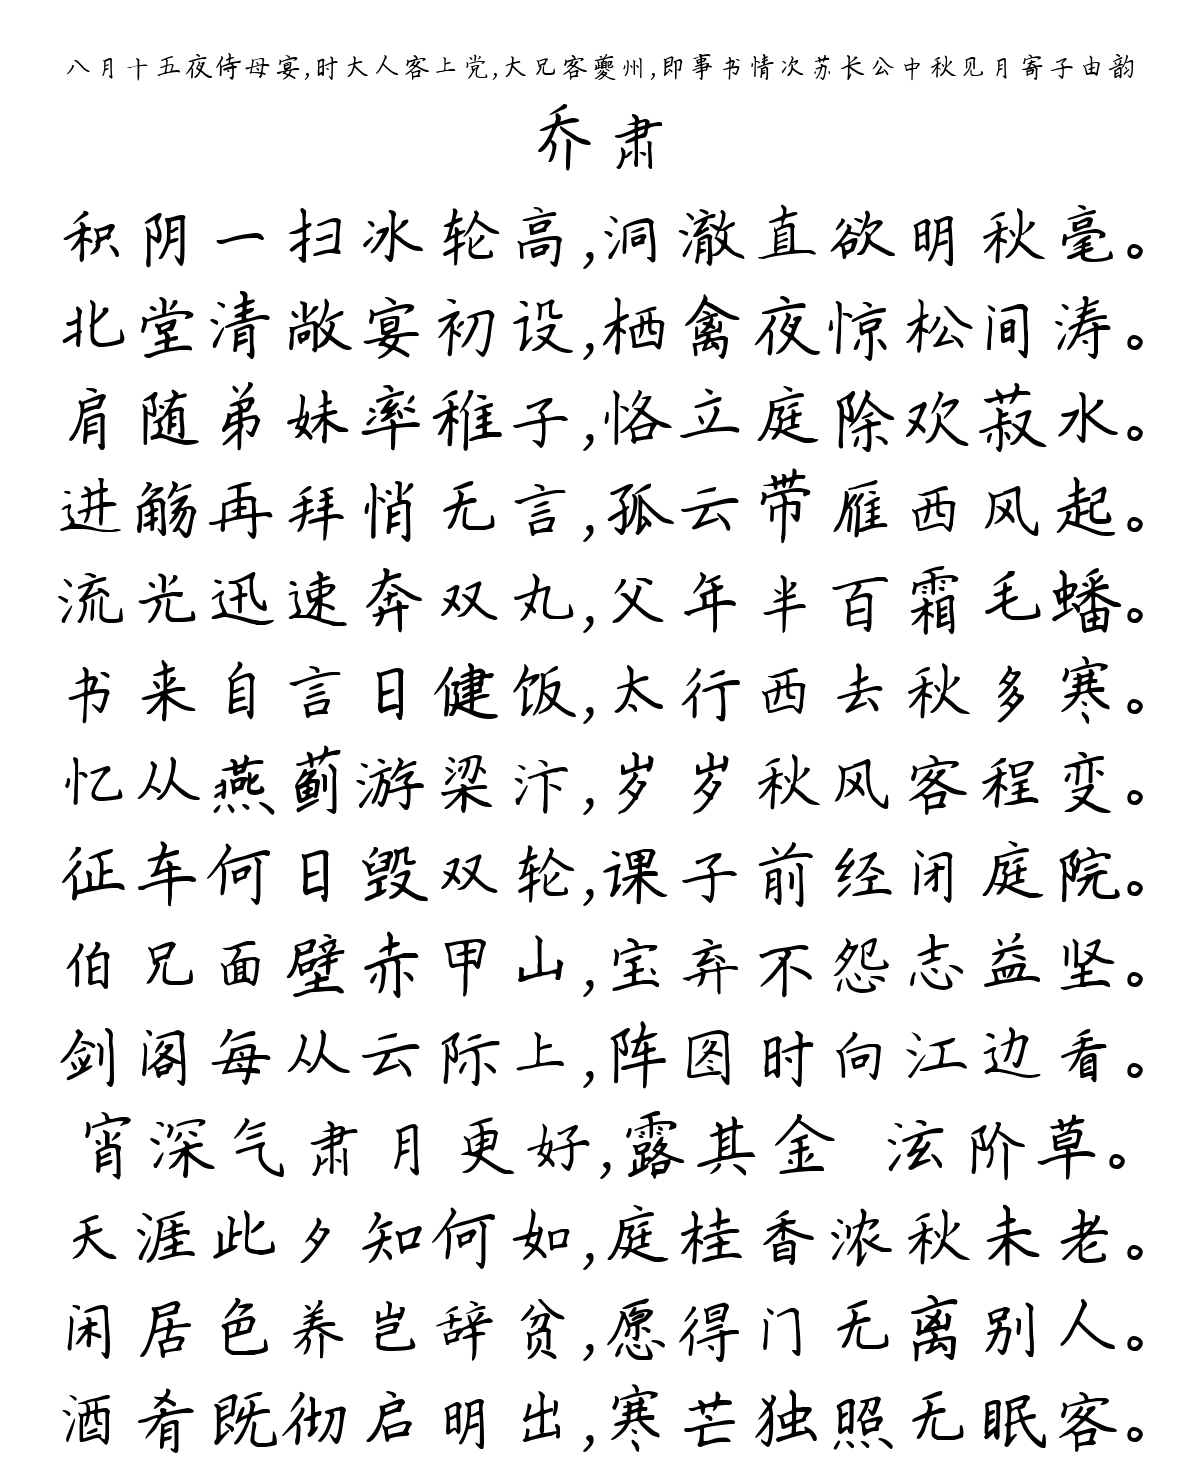 八月十五夜侍母宴,时大人客上党,大兄客夔州,即事书情次苏长公中秋见月寄子由韵
乔肃
积阴一扫冰轮高,洞澈直欲明秋毫。
北堂清敞宴初设,栖禽夜惊松间涛。
肩随弟妹率稚子,恪立庭除欢菽水。
进觞再拜悄无言,孤云带雁西风起。
流光迅速奔双丸,父年半百霜毛蟠。
书来自言日健饭,太行西去秋多寒。
忆从燕蓟游梁汴,岁岁秋风客程变。
征车何日毁双轮,课子前经闭庭院。
伯兄面壁赤甲山,宝弃不怨志益坚。
剑阁每从云际上,阵图时向江边看。
宵深气肃月更好,露其金 泫阶草。
天涯此夕知何如,庭桂香浓秋未老。
闲居色养岂辞贫,愿得门无离别人。
酒肴既彻启明出,寒芒独照无眠客。